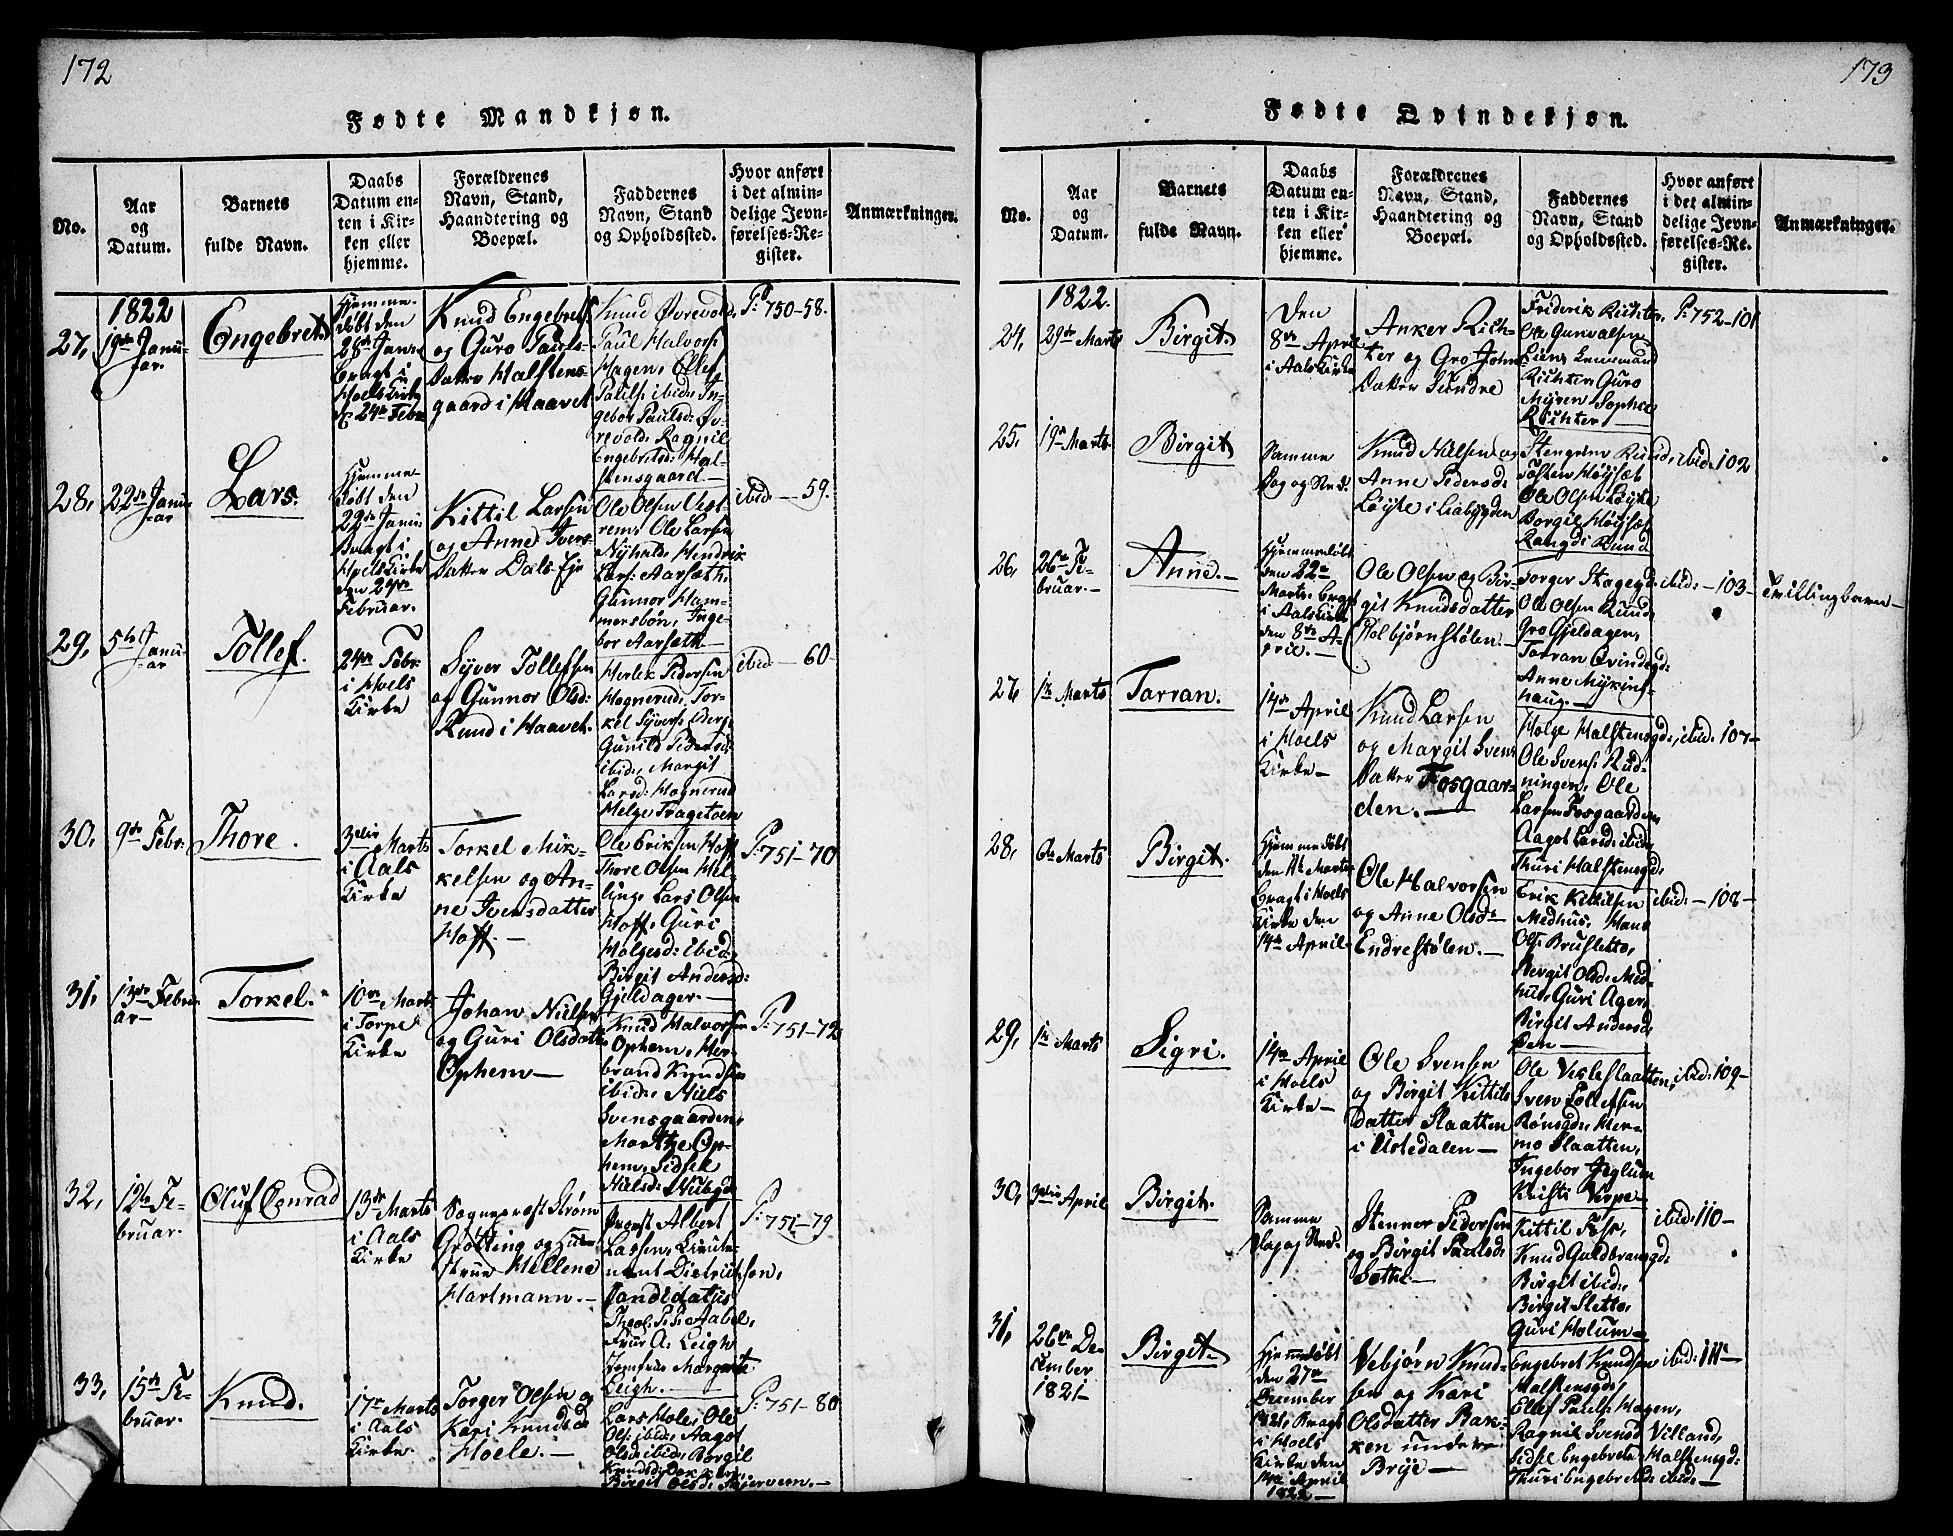 172
Fødte Mandkjøn.
No.
Aar
og
Datum.
Barnets
fulde Navn.
Daabs
Datum en-
ten i Kir-
ken eller
hjemme.
Forældrenes
Navn, Stand,
Haandtering og
Boepæl.
Faddernes
Navn, Stand
og Opholdssted.
Hvor anført
i det almin-
delige Jevn-
førelses-Re-
gister.
Anmærkninger.
1822
27,
19de Janu-
ar.
Engebret
Hjemme-
døbt den
28de Janr
bragt i
Hoels Kirke
d. 24de Febr
Knud Engebrets
og Guro Pauls-
datter Halstens-
gaard i Haavet
Knud Øvrevold,
Paul Halvors
Hagen, Ellef
Pauls: ibid: In-
gebor Paulsd: Øv-
revold, Ragnil
Engebretsd: Hal-
stensgaard.—
P: 750-58.
28,
22de Janu-
ar
Lars.
Hjemme-
døbt den
29de Janu:
bragt i
Hoels Kirke
den 24de
Februar.
Kittil Larsen
og Anne Ivers-
datter Dals Eje
Ole Olsen Vest-
rem, Ole Larsen
Nyhald, Hendrik
Lars: Aarseth,
Gunnor Ham-
mersbøn, Inge-
bor Aarseth.—
ibid:—59.
29,
5te Janu-
ar
Tollef.
24de Febr:
i Hoels
Kirke
Syver Tollefsen
og Gunnor Olsd:
Rund i Haavet.
Herlek Pedersen
Hognerud, Tor-
kel Syvers:
Gunild Pedersd:
ibid:, Margit
Larsd: Hognerud
Helge Tragetoen
ibid:—60-
30,
9de Febr:
Thore.
3die Marts
i Aals
Kirke
Torkel Mik-
kelsen og An-
ne Iversdatter
Hoff.—
Ole Eriksen Hoff
Thore Olsen Mel-
ling, Lars Olsen
Hoff, Guri
Holgesd: ibid:,
Birgit Andersd:
Gjeldager.—
P: 751-70
31,
13de Febru-
ar—
Torkel.
10de Marts
i Torpe
Kirke
Johan Nielsen
og Guri Olsdatter
Ophem—
Knud Halvorsen
Ophem, Her-
brand Knudsen
ibid:, Niels
Svensgaarden,
Marthe Op-
hem, Sidsel
Nielsd: Nubgd:
P: 751-72
32,
12te Fe-
bruar.
Oluf Conrad
13de Marts
i Aals
Kirke
Sognepræst Strøm
Grøtting og Hu-
strue Hellene
Hartmann.—
Provst Albert
Lassen, Lieute-
nant Dietrichson,
Candidatus
Theol: P: Aabel,
Frue A: Leigh
Jomfrue Margrete
Leigh.—
P: 751-79
33,
15de Fe-
bruar.
Knud.
17de Marts
i Aals
Kirke.
Torger Olsen og
Kari Knudsd:
Hoele.—
Lars Hole, Ole
Ols: ibid:, Aagot
Olsd: ibid:, Borgil
Knudsd:
Birgit Olsd: Skjervem.—
P: 751-80
173
Fødte Qvindekjøn.
No.
Aar
og
Datum.
Barnets
fulde Navn.
Daabs
Datum en-
ten i Kir-
ken eller
hjemme.
Forældrenes
Navn, Stand,
Haandtering og
Boepæl.
Faddernes
Navn, Stand
og Opholdssted.
Hvor anført
i det almin-
delige Jevn-
førelses-Re-
gister.
Anmærkninger.
1822.
24,
29de Marts
Birgit.
Den
8de April
i Aals Kirke
Anker Rich-
ter og Gro John-
datter Sundre
Friderik Richter,
Ole Gunvalsen
Lensmand
Richter, Guro
Myren, Sophie
Richter—
P: 752-101
25,
19de Marts
Birgit
Samme
Dag og Sted.
Knud Nilsen og
Anne Pedersd:
Løyte i Liabygden
Stengrim Rund,
Tosten Høgset
Ole Olsen Løyte
Borgil Høgset
Rangdi Rund
ibid: 102
26,
26de Fe-
bruar.—
Anne.—
Hjemmedøbt
den 22de
Marts, bragt
i Aals Kirke
den 8de A-
pril.—
Ole Olsen og Bir-
git Knudsdatter
Kolbjørnstølen.—
Torger Skogegd:
Ole Olsen Rund,
Gro Gjeldagen,
Torran Qvindegd:
Anne Myking-
haug.—
ibid:—103-
Tvillingbarn—
27,
1te Marts
Torran.
14de April
i Hoels
Kirke—
Knud Larsen
og Margit Svens-
datter Fosgaar-
den.—
Holge Halstensgd:,
Ole Svens: Rud-
ningen, Ole
Larsen Fosgaarden,
Aagot Larsd: ibid:,
Thuri Halstensgd:
ibid: 107-
28,
6te Marts
Birgit.
Hjemmedøbt
den 11te Marts
bragt i Hoels
Kirke den
14de April.
Ole Halvorsen
og Anne Olsd:
Endrestølen.—
Erik Kittilsen
Medhus, Hans
Ols: Brusletto,
Bergit Olsd: Med-
hus, Guri Ager,
Birgit Andersd:
ibid:—108-
29,
1te Marts
Sigri.
14de April
i Hoels
Kirke—
Ole Svensen
og Birgit Kittils-
datter Slaatten
i Ustedalen—
Ole Visleslaatten,
Sven Tollefsen
Rønsgd: Her-
mo Slaatten,
Ingebor Jeglum
Kristi Virpe—
ibid: 109-
30,
3die April
Birgit.
Samme
Dag og Sted.
Stenner Pedersen
og Birgit Paulsd:
Sethe—
Kittil Foss,
Knud Guldbransgd:
Birgit ibid:,
Birgit Sletto,
Guri Holum—
ibid: 110-
31,
26de De-
cember
1821-
Birgit.
Hjemmedøbt
den 27de
December
1821, bragt
i Hoels
Kirke den
14de April
1822—
Vebjørn Knud-
sen og Kari
Olsdatter Bak-
ken under
Brye—
Engebret Knudsen
Halstensgd:,
Ellef Pauls: Hagen,
Ragnil Svensd: Villand,
Sidsel Engebretsd: Halstensgd:
Thuri Engebretsd: ibid:—
ibid: 111-